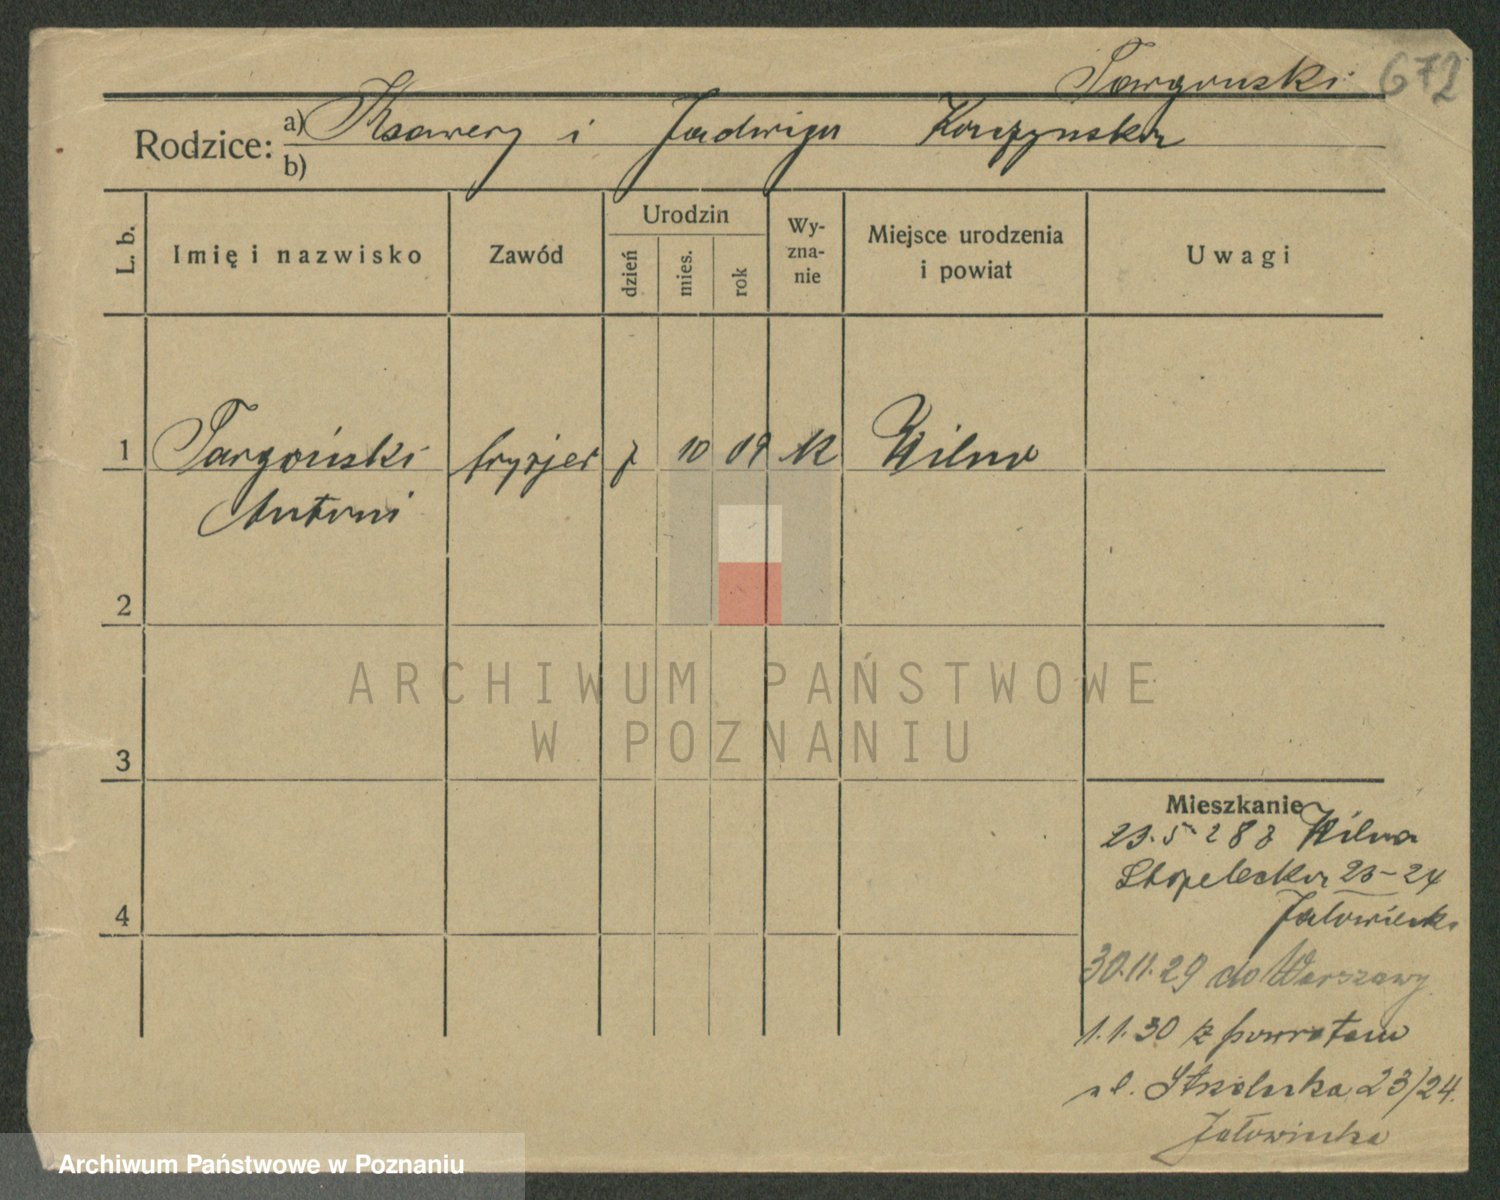 Targonski 672
Rodzice: a) Ksawery i Jadwiga
b)
L. b. Imię i nazwisko Zawód Urodzin dzień mies. rok Wy-zna-nie Miejsce urodzenia i powiat Uwagi
1 Targoński fryzjer 7 10 09 rk Wilno
Antoni
2
ARCHIWUM PAŃSTWOWE
W POZNANIU
3
Mieszkanie
23.5 28 z Wilna
Strzelecka 23-24
Jałowiecki
4
30.11.29 do Warszawy
1.1.30 z powrotem
ul. Strzelecka 23/24.
Jałowiecka
Archiwum Państwowe w Poznaniu